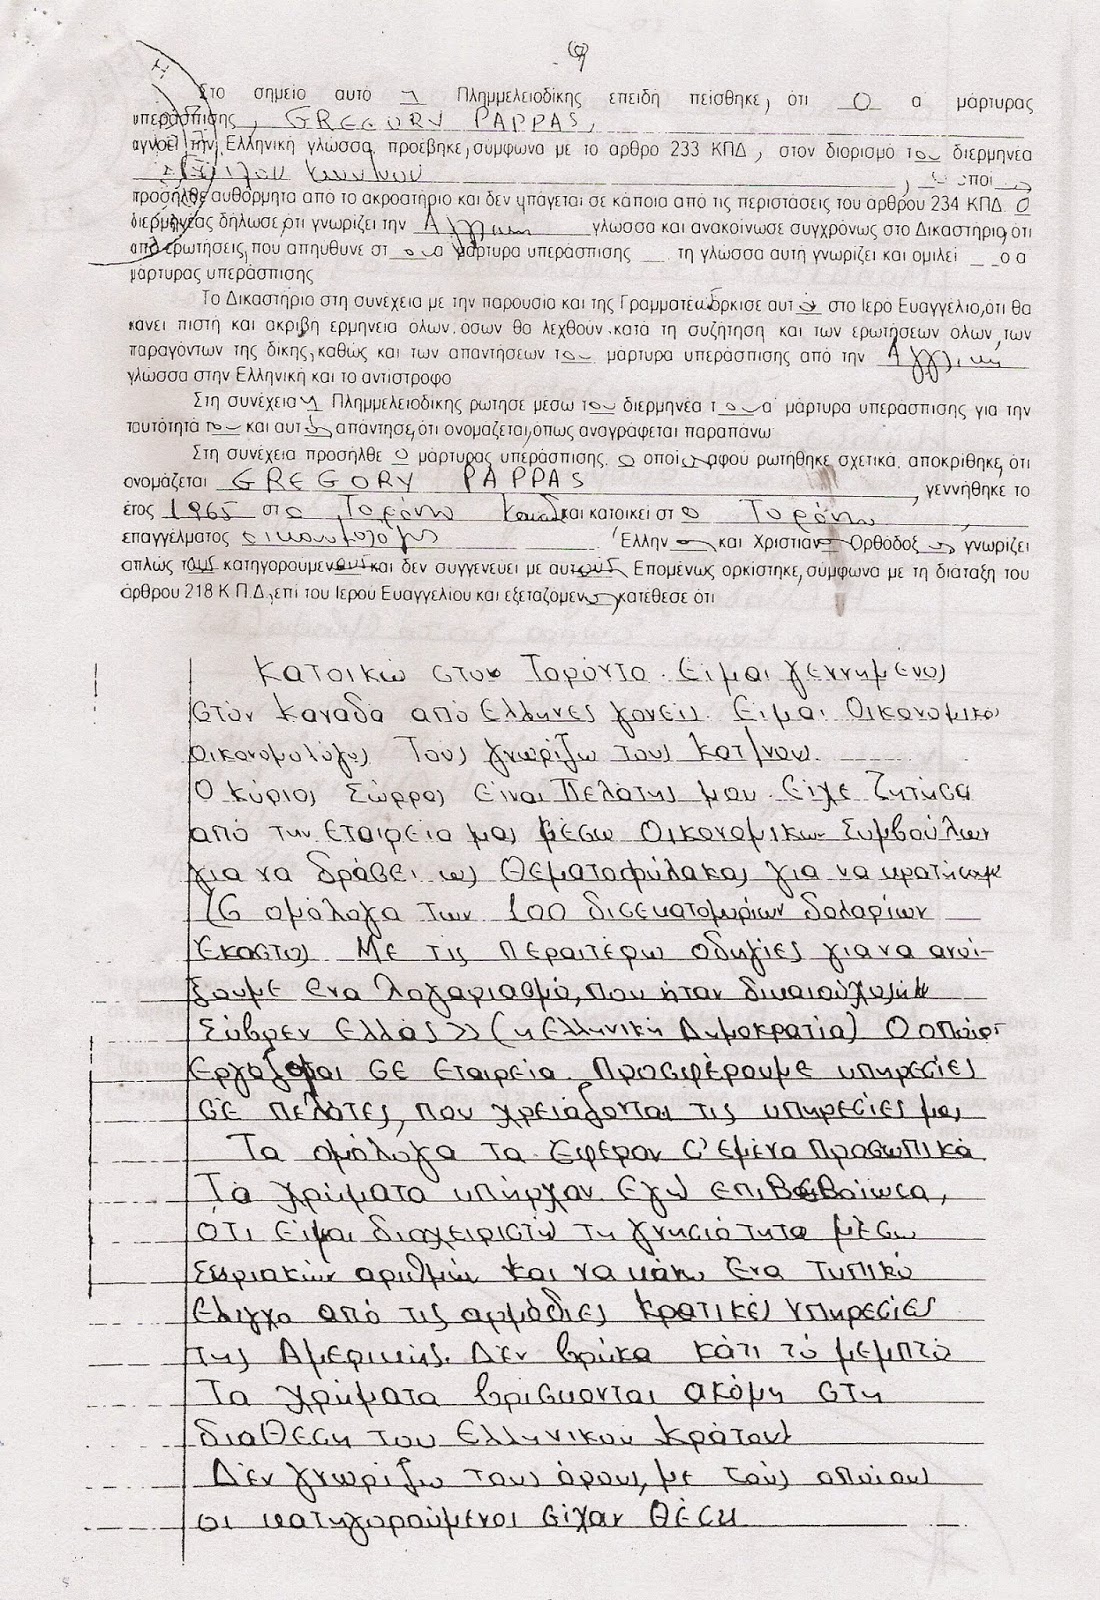 Στο σημείο αυτό η Πλημμελειοδίκης επειδή πείσθηκε, ότι Ο α μάρτυρας
υπεράσπισης, GREGORY PAPPAS,
αγνοεί την Ελληνική γλώσσα, προέβηκε, σύμφωνα με το αρθρο 233 ΚΠΔ, στον διορισμό του διερμηνέα
προσήλθε αυθόρμητα από το ακροατήριο και δεν υπάγεται σε κάποια από τις περιστάσεις του άρθρου 234 ΚΠΔ. Ο
διερμηνέας δήλωσε, ότι γνωρίζει την Αγγλική γλώσσα και ανακοίνωσε συγχρόνως στο Δικαστήριο, ότι
από ερωτήσεις, που απηυθυνε στ ο ν α μάρτυρα υπεράσπισης τη γλώσσα αυτή γνωρίζει και ομιλεί ο α
μάρτυρας υπεράσπισης
Το Δικαστήριο στη συνέχεια με την παρουσία και της Γραμματέα όρκισε αυτό στο Ιερό Ευαγγέλιο, ότι θα
κανει πιστή και ακριβη ερμηνεια όλων, όσων θα λεχθούν κατά τη συζήτηση και των ερωτήσεων όλων των
παραγόντων της δίκης, καθώς και των απαντήσεων του μάρτυρα υπεράσπισης από την Αγγλική
γλώσσα στην Ελληνική και το αντιστροφο
Στη συνέχεια η Πλημμελειοδίκης ρωτησε μεσω του διερμηνέα τ ο ν α μάρτυρα υπεράσπισης για την
ταυτότητά του και αυτός απάντησε, ότι ονομαζεται, όπως αναγράφεται παραπάνω
Στη συνέχεια προσήλθε ο μάρτυρας υπεράσπισης, ο οποίος αφού ρωτήθηκε σχετικά, αποκρίθηκε, ότι
ονομάζεται GREGORY PAPPAS, γεννήθηκε το
έτος 1965 στο Τορόντο Καναδ και κατοικεί στ ο Τορόντο
επαγγέλματος οικονομολόγος Έλλην ας και Χριστιαν ός Ορθόδοξ ος γνωρίζει
απλώς τους κατηγορουμένους και δεν συγγενευει με αυτους Επομένως ορκίστηκε, σύμφωνα με τη διάταξη του
άρθρου 218 Κ.Π.Δ., επί του Ιερού Ευαγγελίου και εξεταζόμενος κατέθεσε ότι
Κατοικώ στον Τορόντο. Είμαι γεννημένος
στον Καναδα από Ελληνες γονείς. Είμαι Οικονομικο
οικονομολόγος Τους γνωρίζω τους κατ/νους.
Ο κύριος Σώρρας είναι Πελάτης μου. Είχε ζητήσει
από την εταιρεία μας μέσω Οικονομικών Συμβούλων
για να δράσει ως Θεματοφύλακας για να κρατήσουμε
16 ομόλογα των 100 δισεκατομυρίων δολαρίων
έκαστο. Με τις περαιτέρω οδηγίες για να ανοί-
ξουμε ένα λογαριασμό, που ήταν δικαιούχος
Σύβρεν Ελλάς>> (η Ελληνική Δημοκρατία)
Εργάζομαι σε εταιρεία. Προσφέρουμε υπηρεσίες
σε πελάτες, που χρειάζονται τις υπηρεσίες μας
Τα ομόλογα τα έφεραν σ'εμένα προσωπικά.
Τα χρήματα υπήρχαν. Εγώ επιβεβαίωσα,
ότι είμαι διαχειριστής τη γνησιότητα μέσω
Σειριακών αριθμών και να κάνω ένα τυπικό
έλεγχο από τις αρμόδιες κρατικές υπηρεσίες
της Αμερικής. Δέν βρήκα κάτι το μεμπτό
Τα χρήματα βρίσκονται ακόμη στη
διάθεση του Ελληνικού κράτους
Δέν γνωρίζω τους όρους, με τους οποίους
οι κατηγορούμενοι είχαν θέση